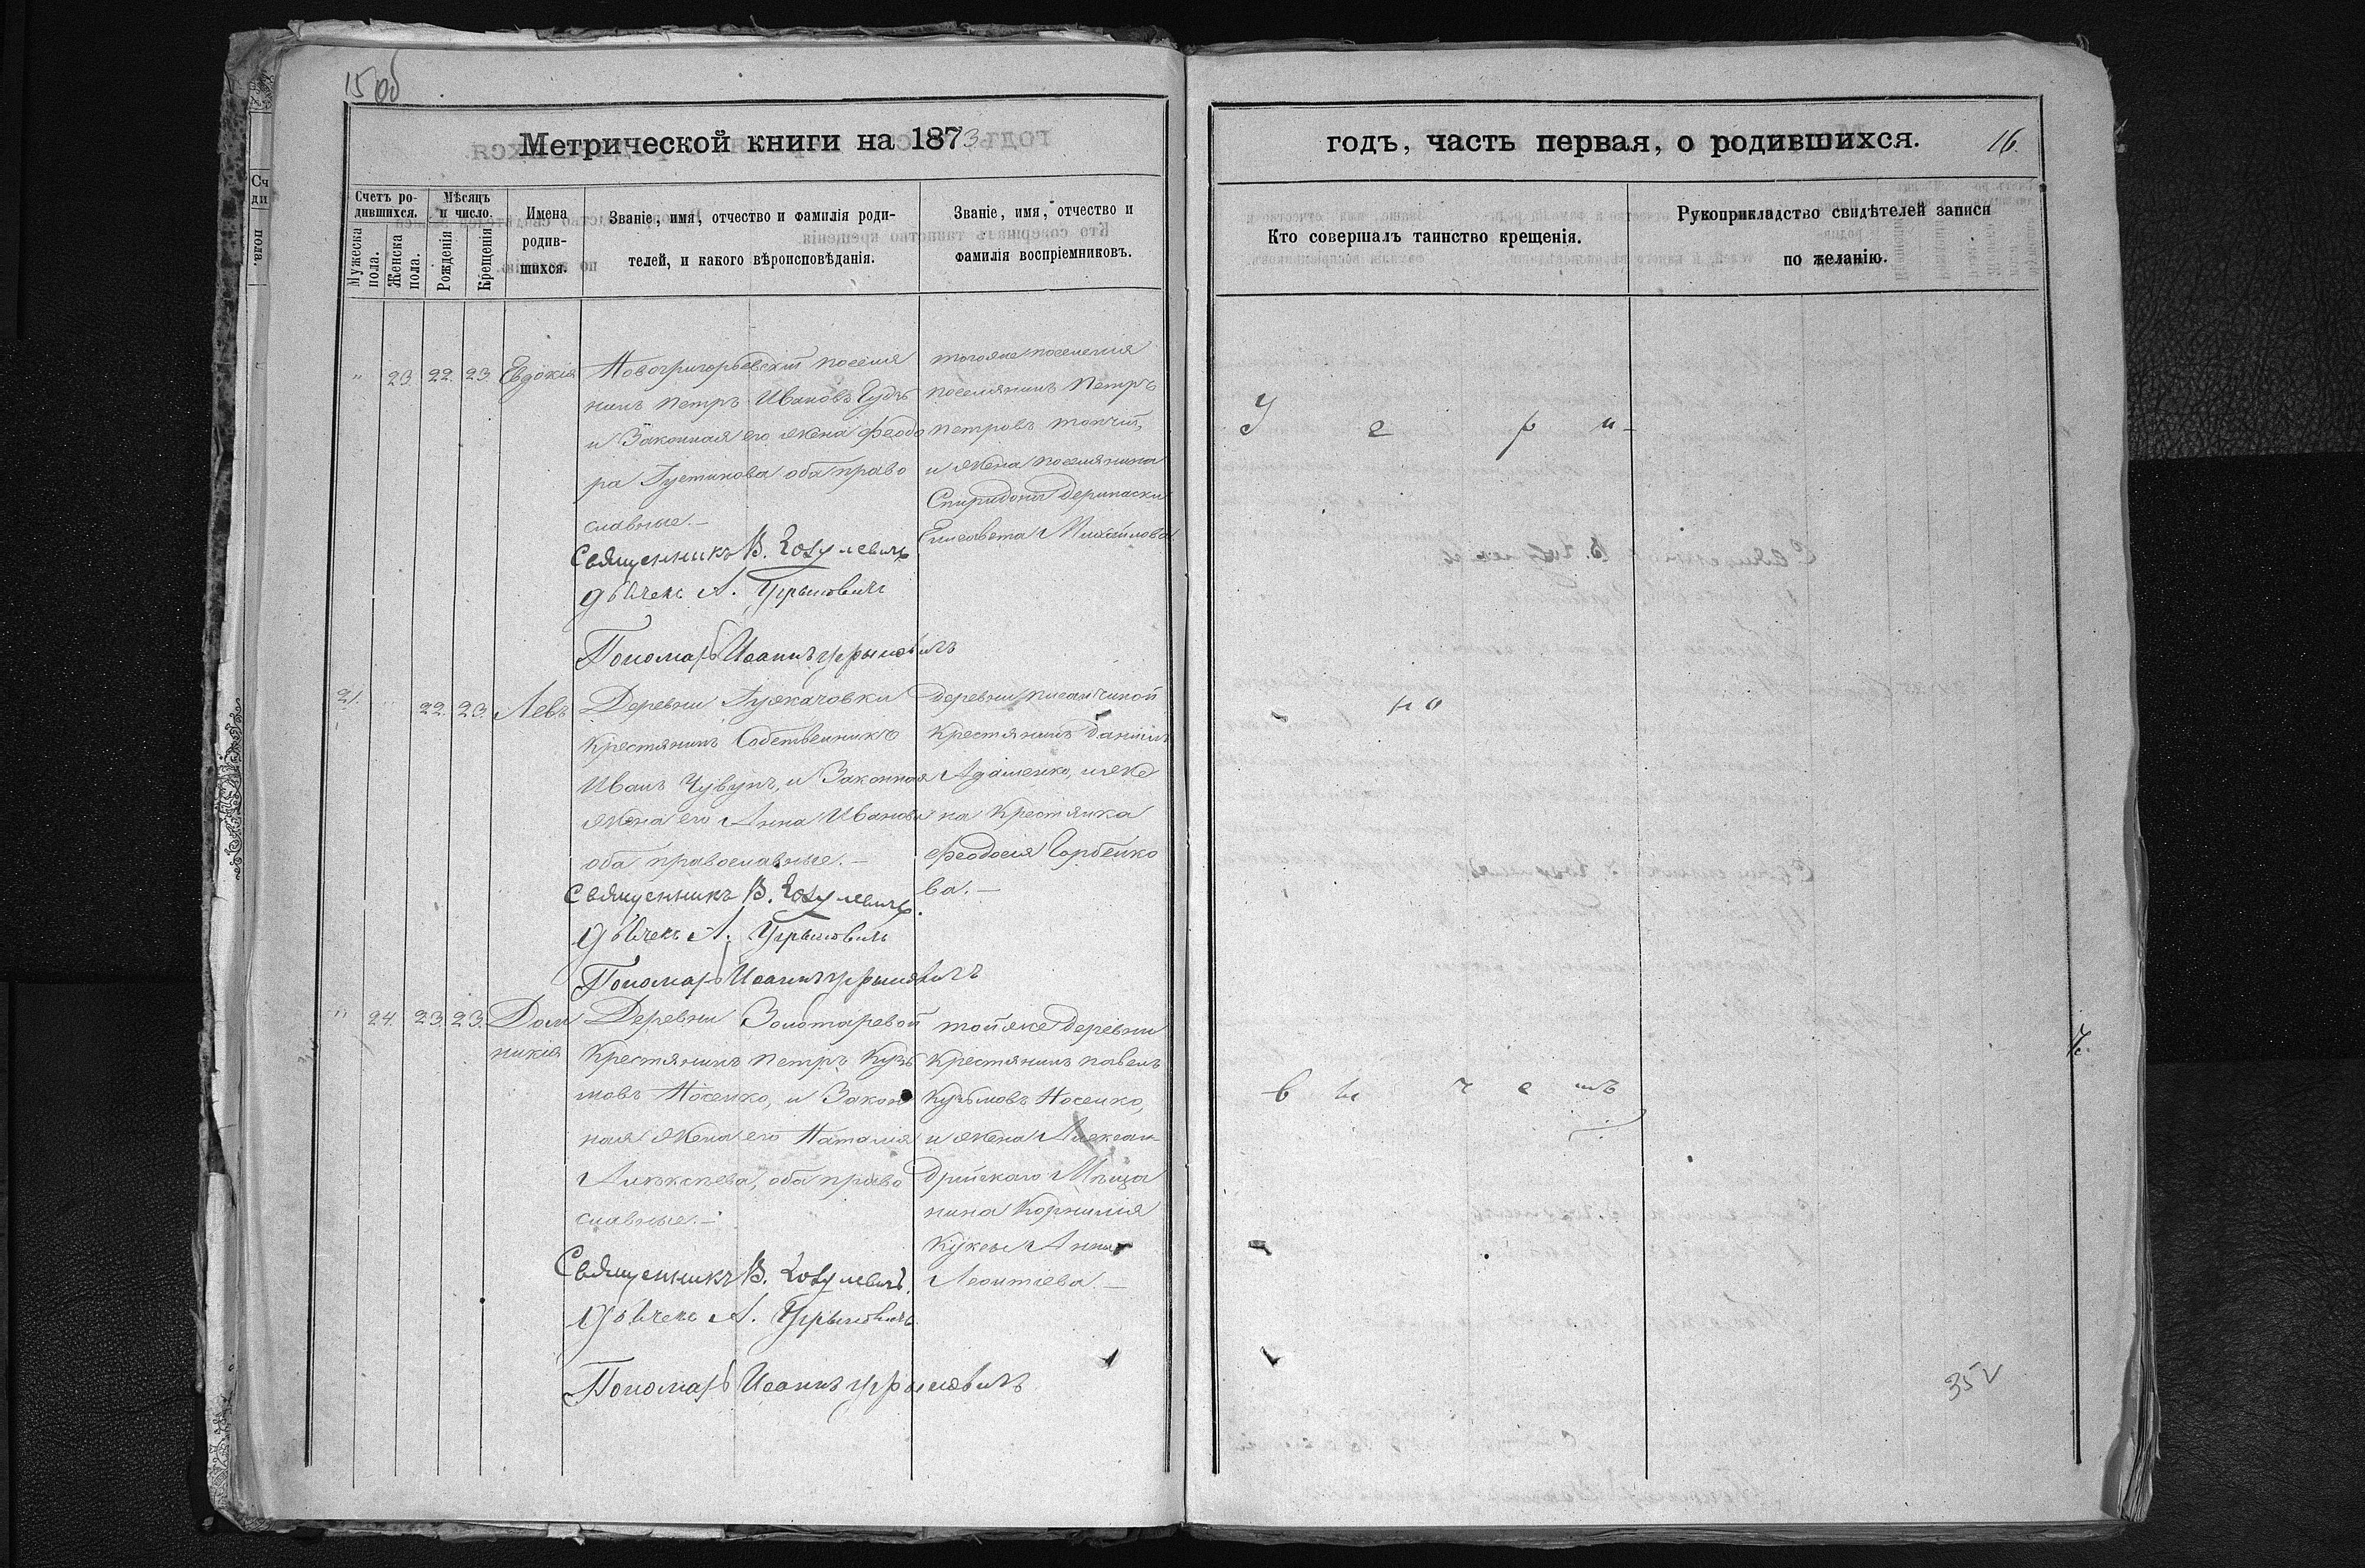 15 об
Метрической книги на 1873
Счетъ ро-
дившихся.
Мужеска
пола.
Женска
пола.
Мѣсяцъ
и число.
Рожденія
Крещенія
Имена
родив-
шихся.
Званіе, имя, отчество и фамилія роди-
телей, и какого вѣроисповѣданія.
Званіе, имя, отчество и
фамилія воспріемниковъ.
" 23. 22. 23. Евдокія
Новогригорьевскій поселя
нинъ Петръ Ивановъ
и Законная его жена Феодо
ра Іустинова оба право
славные.–
Священникъ В.
Дьячекъ А.
Пономарь Иоаннъ
тогоже поселенія
поселянинъ Петръ
Петровъ
и жена поселянина
Спиридона Дерипаски
Елисавета Михайлова
21. 22. 23. Левъ
Деревни
Крестянинъ Собственникъ
Иванъ Чувунъ, и Законная
жена его Анна Иванова
оба православные.–
Священникъ В.
Дьячекъ А.
Пономарь Иоаннъ
деревни
Крестянинъ Даніилъ
Адаменко, и
на Крестянка
Феодосія Горбенко
ва.–
" 24. 23. 23. Дом
никія
Деревни Золотаревой
Крестянинъ Петръ Кузь
мовъ Носенко, и Закон
ная жена его Наталія
Алекспева, оба право
славные.–
Священникъ В.
Дьячекъ А.
Пономарь Иоаннъ
тойже деревни
Крестянинъ Павелъ
Кузьмовъ Носенко,
и жена Алексан–
дрійскаго Мѣща
нина Корнилія
Куксы Анна
Леонтіева.–
годъ, часть первая, о родившихся.
16.
Кто совершалъ таинство крещенія.
Рукоприкладство свидѣтелей записи
по желанію.
35 v